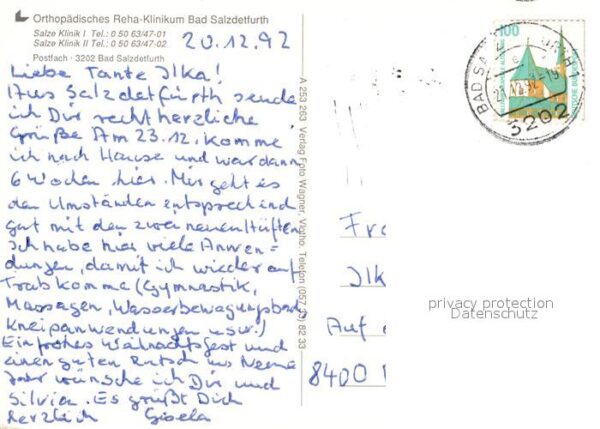 Orthopädisches Reha-Klinikum Bad Salzdetfurth
Salze Klinik I Tel.: 0 50 63/47-01
Salze Klinik II Tel.: 0 50 63/47-02
Postfach · 3202 Bad Salzdetfurth
20.12.92
Liebe Tante Ilka!
Aus Salzdetfurth sende
ich Dir recht herzliche
Grüße. Am 23.12. komme
ich nach Hause und war dann
6 Wochen hier. Mir geht es
den Umständen entsprechend
gut mit den zwei neuen Hüften.
Ich habe hier viele Anwen=
dungen, damit ich wieder auf
Trab komme (Gymnastik,
Massagen, Wasserbewegungsbad,
Kneipanwendungen usw.)
Ein frohes Weihnachtsfest und
einen guten Rutsch ins Neue
Jahr wünsche ich Dir und
Silvia. Es grüßt Dich
herzlich Gisela
A 253 263 Verlag Foto Wagner, Vlotho. Telefon (057 33) 82 33
100
BAD SALZ
3202
Fra
Ilka
Auf
8400
privacy protection
Datenschutz